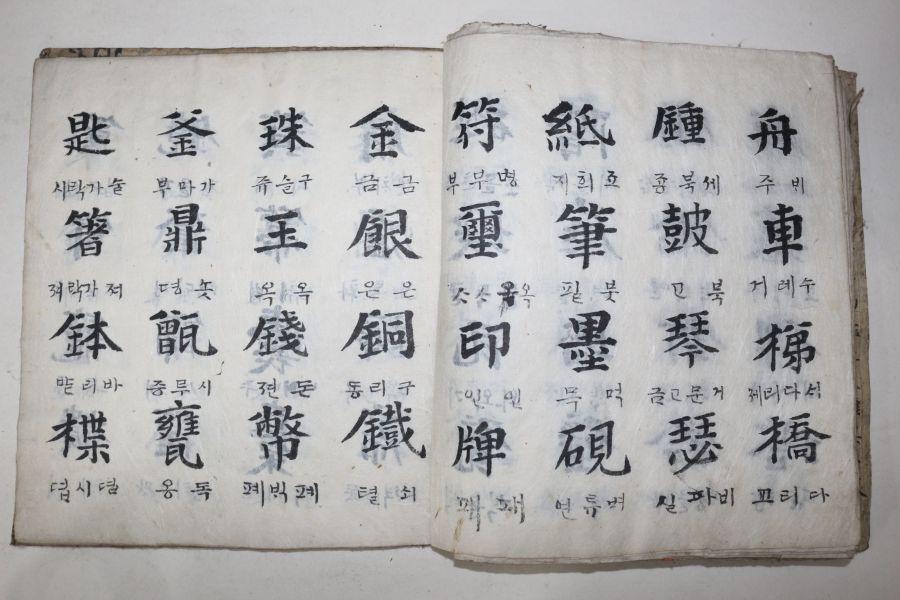 舟 비주 車 수레거 梯 석다리제 橋 다리교
鍾 세북종 鼓 북고 琴 거문고금 瑟 비파실
紙 죠희지 筆 붓필 墨 먹묵 硯 벼류연
符 부 璽 옥 印 인인 牌 패패
金 금금 銀 은은 銅 구리동 鐵 쇠텰
珠 구슬쥬 玉 옥옥 錢 돈젼 幣 폐빅폐
釜 가마부 鼎 솟뎡 甑 시루증 甕 독옹
匙 술가락시 箸 져가락져 鉢 바리발 楪 뎝시뎝